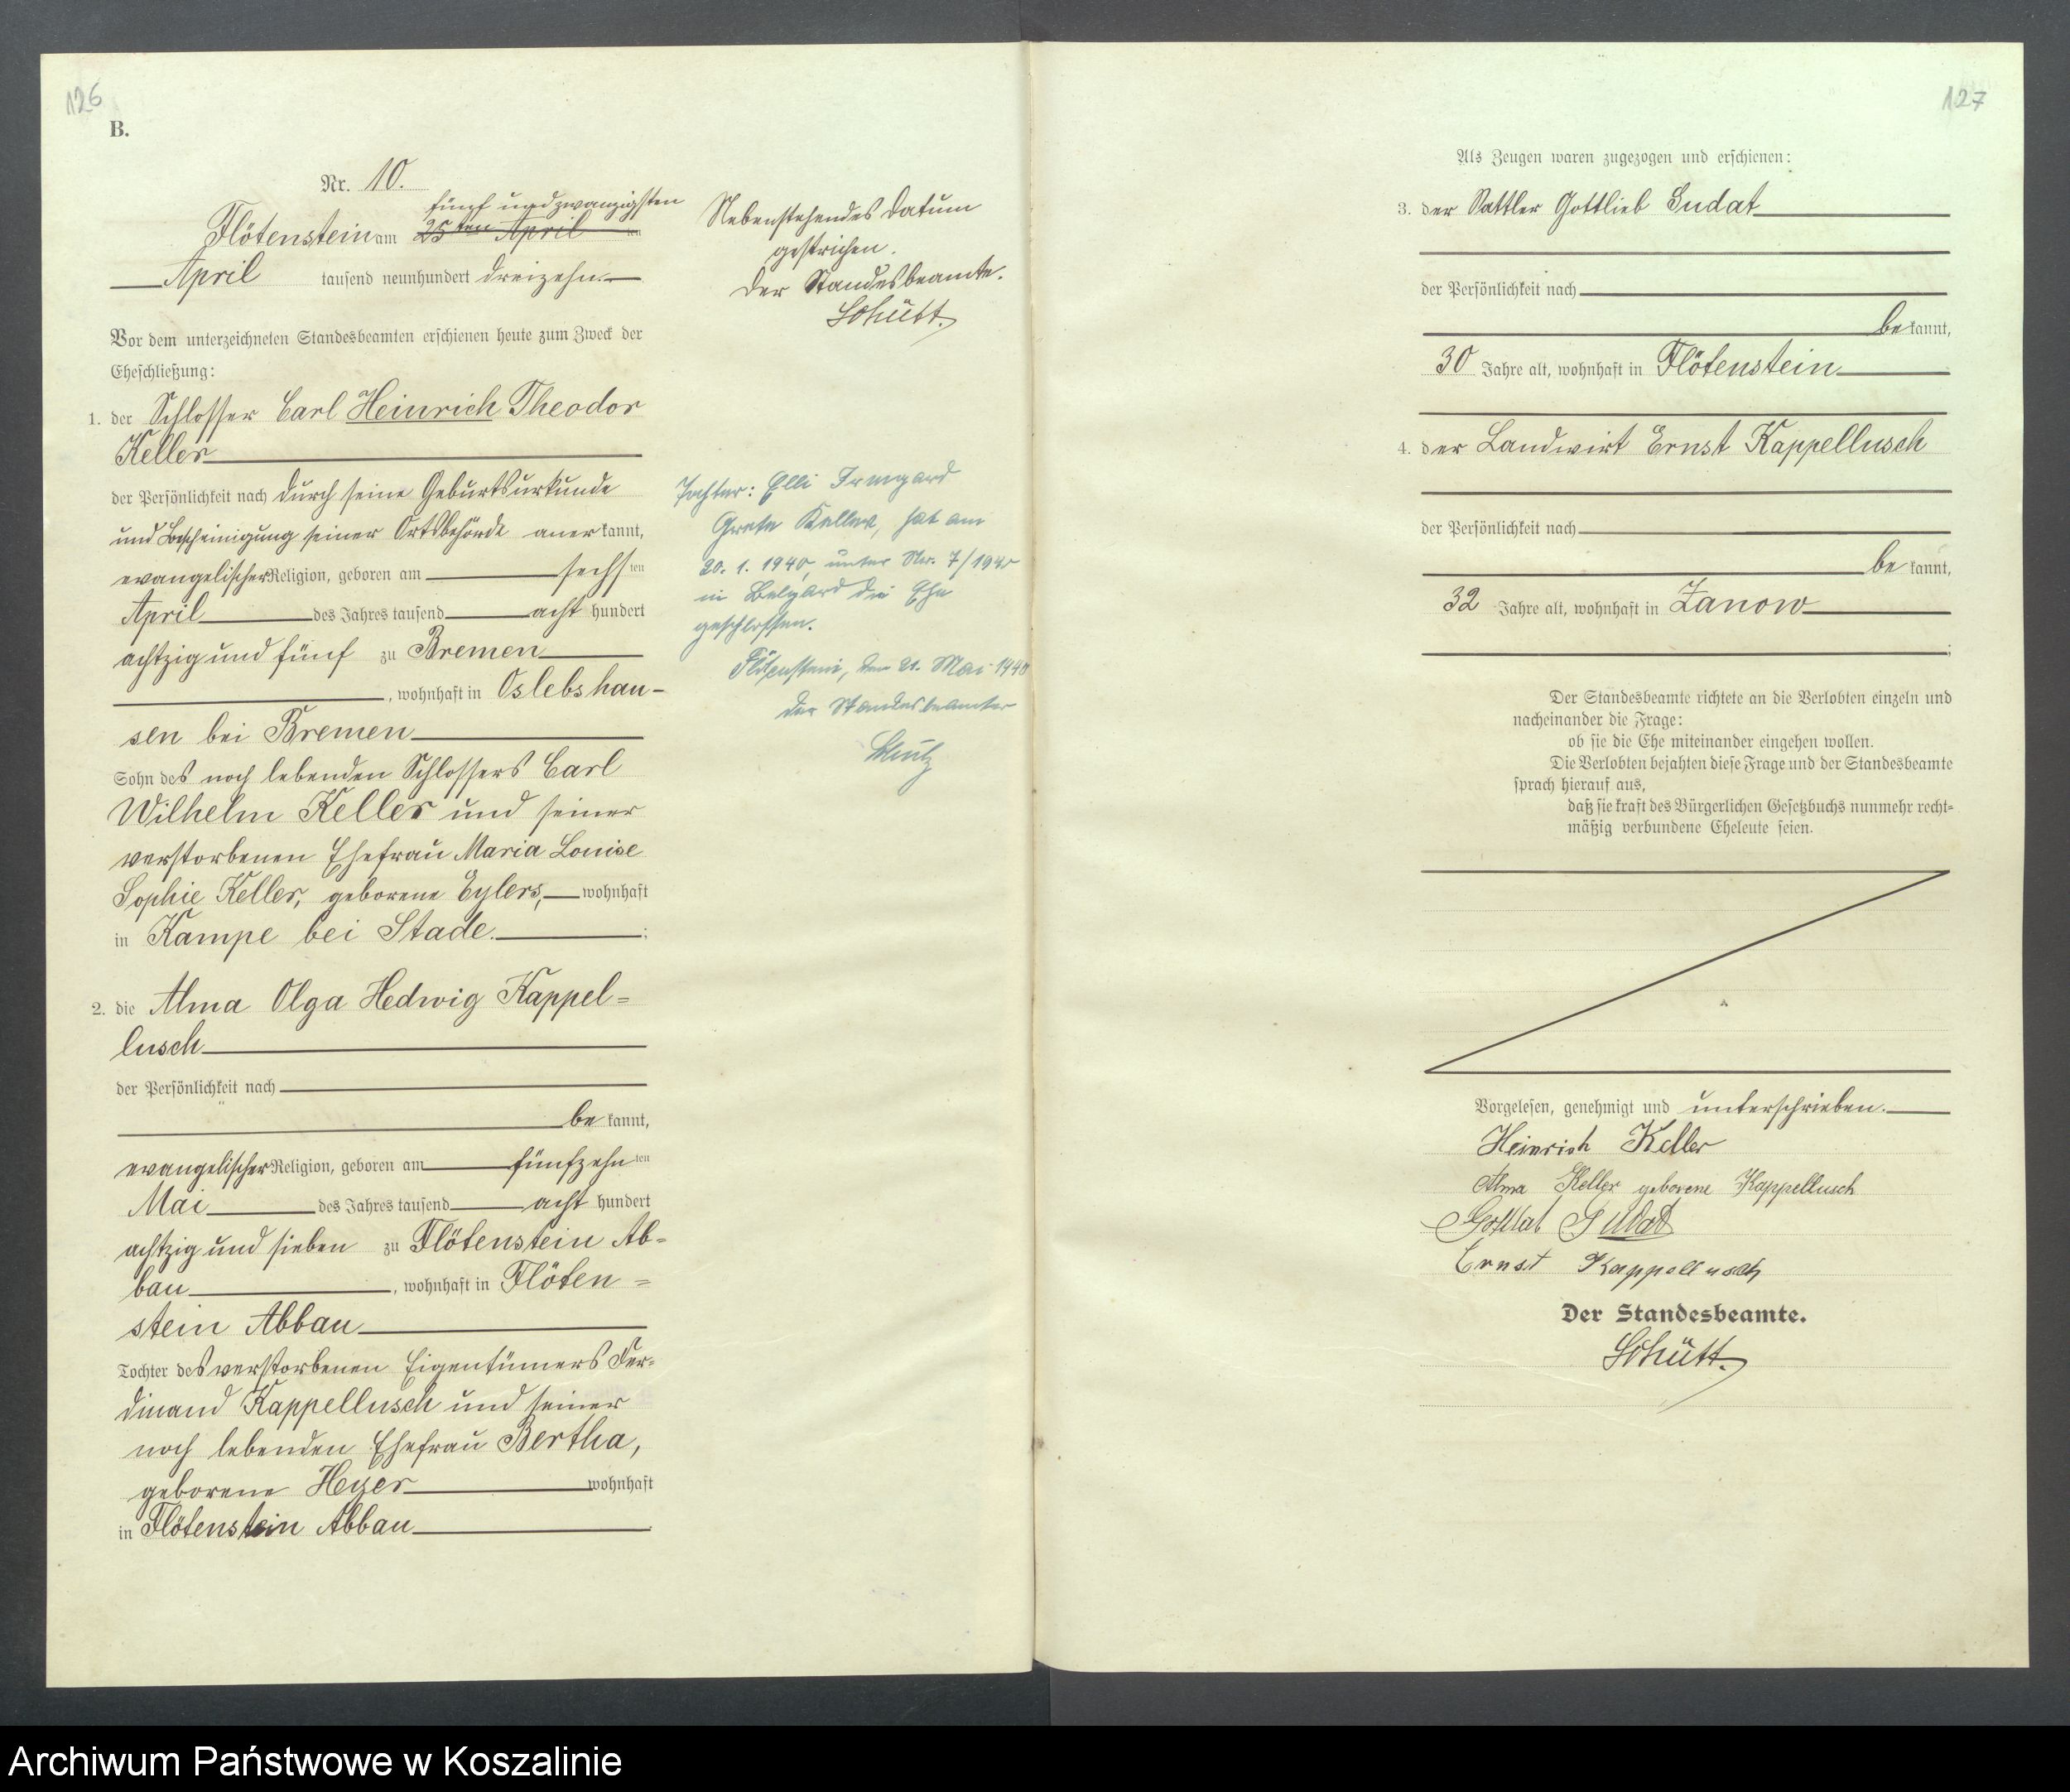 126
B.
Nr. 10.
fünf und zwanzigsten
Flötenstein am 25ten April ten
April tausend neunhundert dreizehn.
Vor dem unterzeichneten Standesbeamten erschienen heute zum Zweck der
Eheschließung:
1. der Schlosser Carl Heinrich Theodor
Keller
der Persönlichkeit nach durch seine Geburtsurkunde
und Bescheinigung seiner Ortsbehörde anerkannt,
evangelischer Religion, geboren am sechsten
April des Jahres tausend acht hundert
achtzig und fünf zu Bremen
, wohnhaft in Oslebshau-
sen bei Bremen
Sohn des noch lebenden Schlossers Carl
Wilhelm Keller und seiner
verstorbenen Ehefrau Maria Louise
Sophie Keller, geborene Eylers, wohnhaft
in Kampe bei Stade. ;
2. die Alma Olga Hedwig Kappel=
lusch
der Persönlichkeit nach
bekannt,
evangelischer Religion, geboren am fünfzehnten
Mai des Jahres tausend acht hundert
achtzig und sieben zu Flötenstein Ab=
bau , wohnhaft in Flöten=
stein Abbau
Tochter des verstorbenen Eigentümers Fer=
dinand Kappellusch und seiner
noch lebenden Ehefrau Bertha,
geborene Heyer wohnhaft
in Flötenstein Abbau
Nebenstehendes Datum
gestrichen.
Der Standesbeamte.
Schütt.
Tochter: Elli Irmgard
Grete Keller, hat am
20. 1. 1940, unter Nr. 7/1940
in Belgard die Ehe
geschlossen.
Flötenstein, den 21. Mai 1940
Der Standesbeamte
127
Als Zeugen waren zugezogen und erschienen:
3. der Sattler Gottlieb Sudat
der Persönlichkeit nach
bekannt,
30 Jahre alt, wohnhaft in Flötenstein
4. der Landwirt Ernst Kappellusch
der Persönlichkeit nach
bekannt,
32 Jahre alt, wohnhaft in Zanow
;
Der Standesbeamte richtete an die Verlobten einzeln und
nacheinander die Frage:
ob sie die Ehe miteinander eingehen wollen.
Die Verlobten bejahten diese Frage und der Standesbeamte
sprach hierauf aus,
daß sie kraft des Bürgerlichen Gesetzbuchs nunmehr recht=
mäßig verbundene Eheleute seien.
Vorgelesen, genehmigt und unterschrieben.
Heinrich Keller
Alma Keller geborene Kappellusch
Sudat
Ernst Kappellusch
Der Standesbeamte.
Schütt.
Archiwum Państwowe w Koszalinie